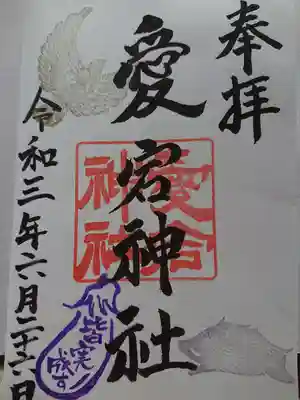 奉拝
愛宕神社
愛宕
神社
令和三年六月二十六日
皆実
成す